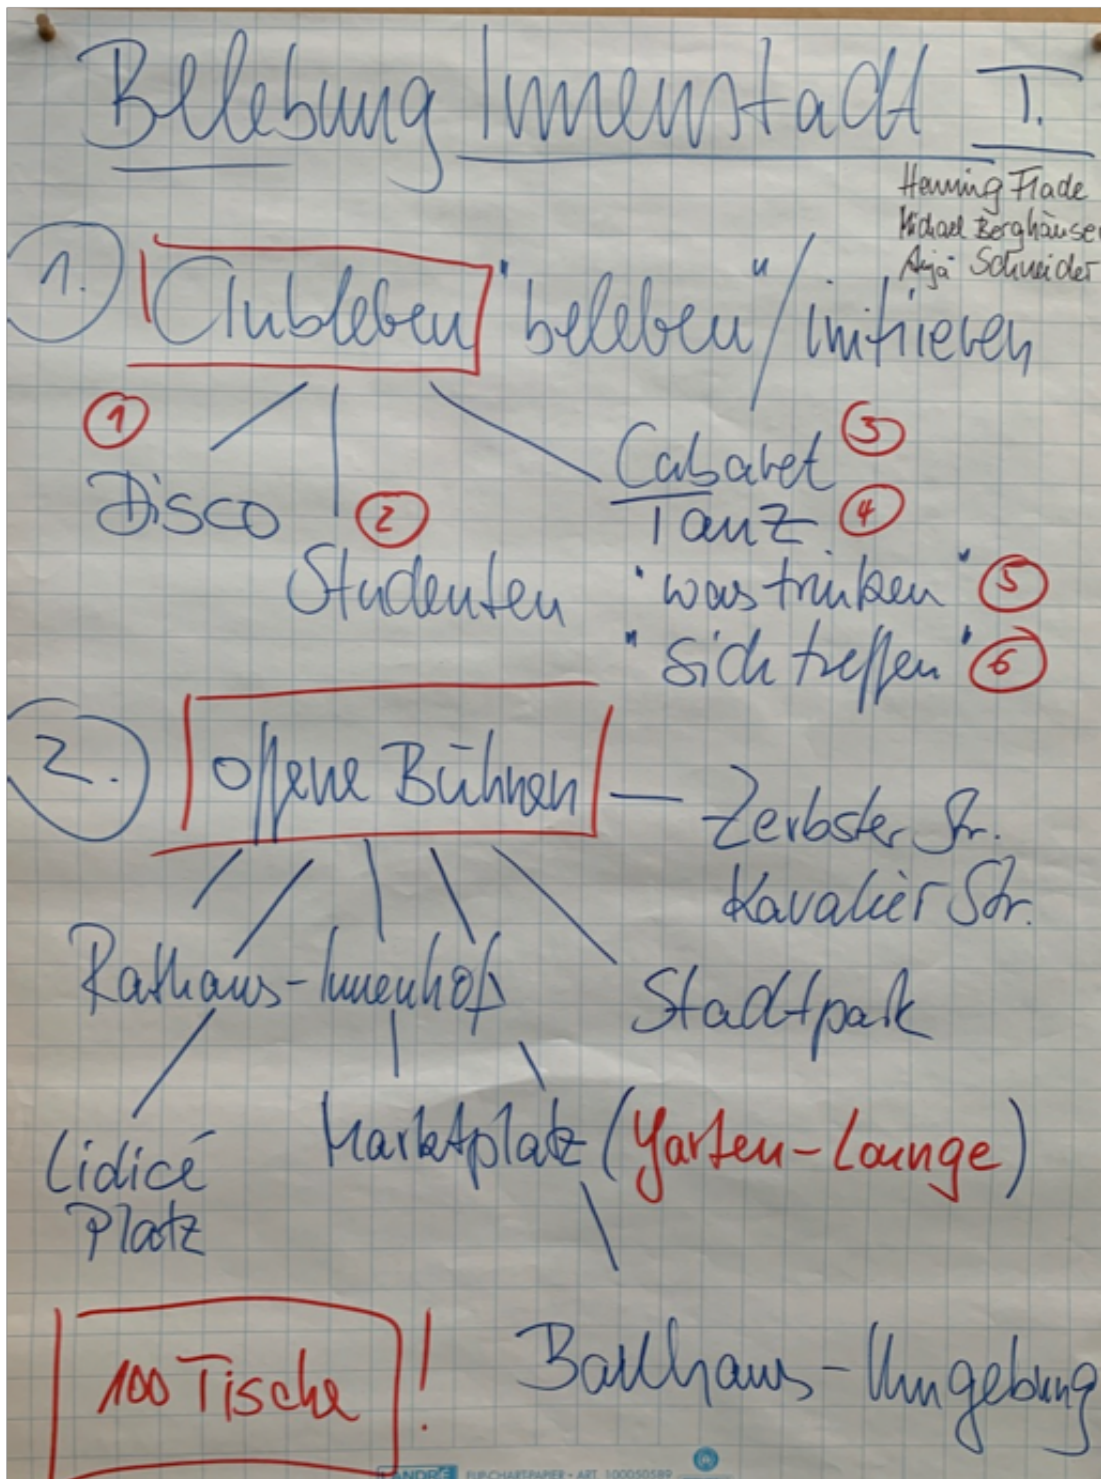 Belebung Innenstadt I.
Henning Flade
Michael Berghäuser
Anja Schneider
1. Clubleben "beleben"/initiieren
1 Disco
2 Studenten
Cabaret 3
Tanz 4
"was trinken" 5
"sich treffen" 6
2. offene Bühnen
Zerbster Str.
Kavalier Str.
Rathaus-Innenhof
Stadtpark
Lidicé
Platz
Marktplatz (Garten-Lounge)
100 Tische!
Bauhaus-Umgebung
LANDRÉ FLIPCHARTPAPIER • ART. 100050589